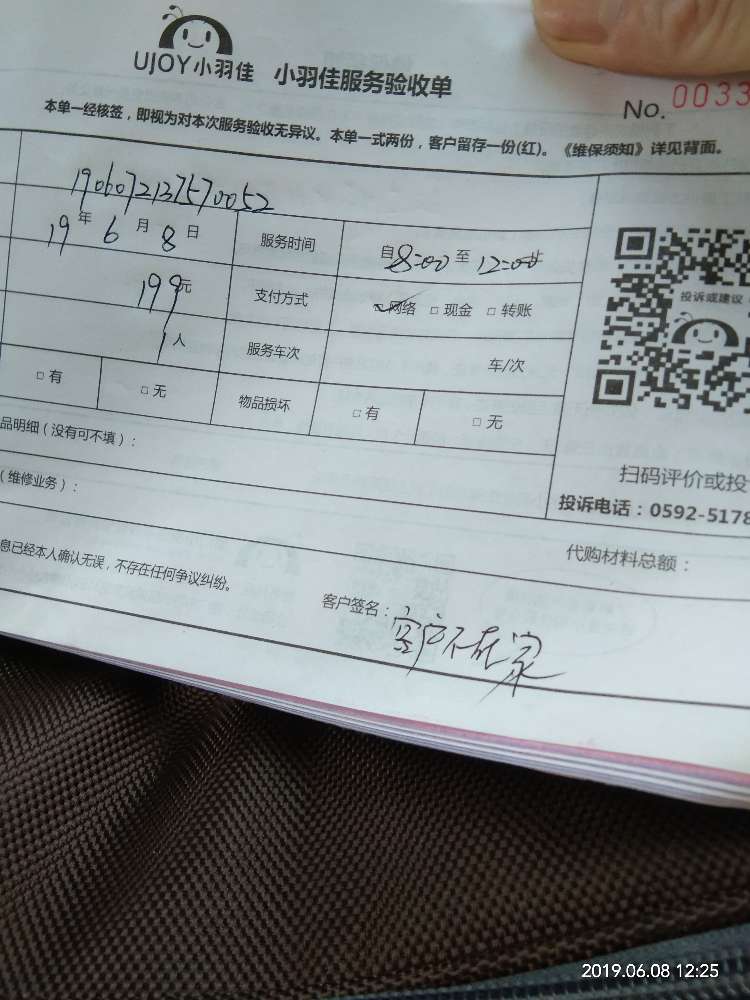 UJOY小羽佳 小羽佳服务验收单
No. 0033
本单一经核签，即视为对本次服务验收无异议。本单一式两份，客户留存一份(红)。《维保须知》详见背面。
1906072137570052
19年6月8日 服务时间 自8:00至12:00
199元 支付方式 □网络 □现金 □转账
1人 服务车次 车/次
□有 □无 物品损坏 □有 □无
投诉或建议
品明细（没有可不填）：
扫码评价或投
（维修业务）：
投诉电话：0592-5178
代购材料总额：
息已经本人确认无误，不存在任何争议纠纷。
客户签名：客户不在家
2019.06.08 12:25